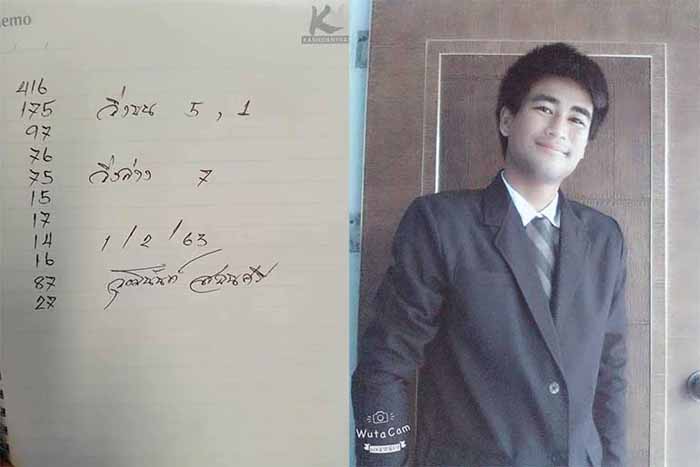 emo
K
KASHDANTHA
416
175
97
76
75
15
17
14
16
87
27
วิ่งบน 5 , 1
วิ่งล่าง 7
1 / 2 / 63
WutaCam